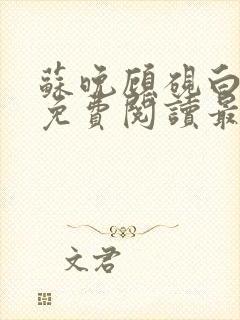 蘇晚顧硯白
免費閱讀最
文君